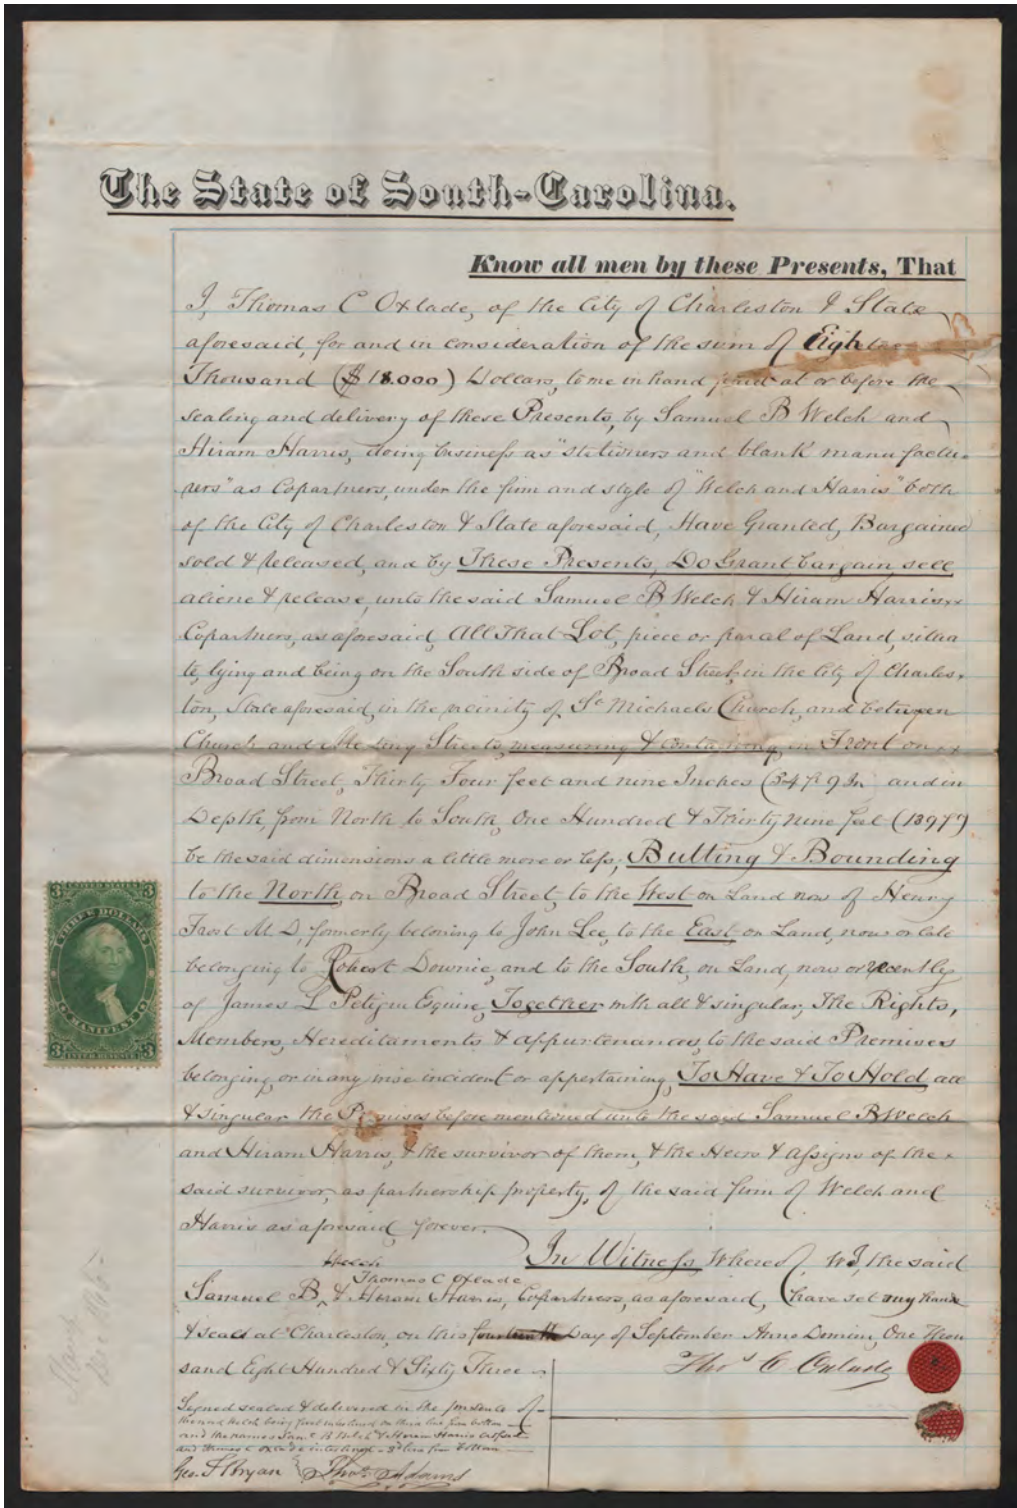 The State of South-Carolina.
Know all men by these Presents, That
I, Thomas C Oxlade, of the City of Charleston & State
aforesaid, for and in consideration of the sum of
Thousand ($18.000) Dollars, to me in hand paid at or before the
sealing and delivery of these Presents, by Samuel B Welch and
Hiram Harris, doing business as "stationers and blank manufactu-
rers" as Copartners, under the firm and style of "Welch and Harris" both
of the City of Charleston & State aforesaid, Have Granted, Bargained
sold & released, and by These Presents, Do Grant bargain sell
aliene & release, unto the said Samuel B Welch & Hiram Harris
Copartners, as aforesaid, All That Lot, piece or parcel of Land, situa
te, lying and being on the South side of Broad Street, in the City of Charles-
ton, State aforesaid, in the vicinity of St Michaels Church, and between
Church and Meeting Streets, measuring & containing, in Front on
Broad Street, Thirty Four feet and nine Inches (34 ft 9 In and in
Depth, from North to South, One Hundred & Thirty nine feet (139 ft)
be the said dimensions a little more or less; Butting & Bounding
to the North, on Broad Street, to the West on Land now of Henry
Frost M D, formerly beloning to John Lee, to the East on Land, now or late
belonging to Robert Downie, and to the South, on Land, now or recently
of James L Petigru Esquire, Together with all & singular, The Rights,
Members, Hereditaments & appurtenances, to the said Premises
belonging, or in any wise incident or appertaining, To Have & To Hold, all
& singular the Premises before mentioned unto the said Samuel B Welch
and Hiram Harris, & the survivor of them, & the Heirs & assigns of the
said survivor, as partnership property, of the said firm of Welch and
Harris as aforesaid forever.
In Witness Whereof, I, the said
Welch
Thomas C Oxlade
Samuel B & Hiram Harris, Copartners, as aforesaid, have set my hand
& seal at Charleston, on this fourteenth Day of September Anno Domini, One Thou
sand Eight Hundred & Sixty Three
Thos C Oxlade
Signed sealed & delivered in the presence of
the word Welch being first interlined on third line from bottom
and the names Saml B Welch & Hiram Harris
and Thomas C Oxlade interlined - 3d line from bottom
Geo. S Bryan Thos. Adams
3 UNITED STATES 3
THREE DOLLARS
MANIFEST
3 INTER. REVENUE 3